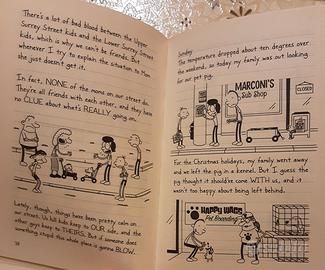 There's a lot of bad blood between the Upper
Surrey Street kids and the Lower Surrey Street
kids, which is why we can't be friends. But
whenever I try to explain the situation to Mom
she just doesn't get it.
In fact, NONE of the moms on our street do.
They're all friends with each other, and they have
no CLUE about what's REALLY going on.
Lately, though, things have been pretty calm on
our street. Us hill kids keep to OUR side, and the
other guys keep to THEIRS. But if someone does
something stupid this whole place is gonna BLOW.
Sunday
The temperature dropped about ten degrees over
the weekend, so today my family was out looking
for our pet pig.
MARCONI'S
Sub Shop
CLOSED
For the Christmas holidays, my family went away
and we left the pig in a kennel. But I guess the
pig thought it should've come WITH us, and it
wasn't too happy about being left behind.
HAPPY WAGS
Pet Boarding